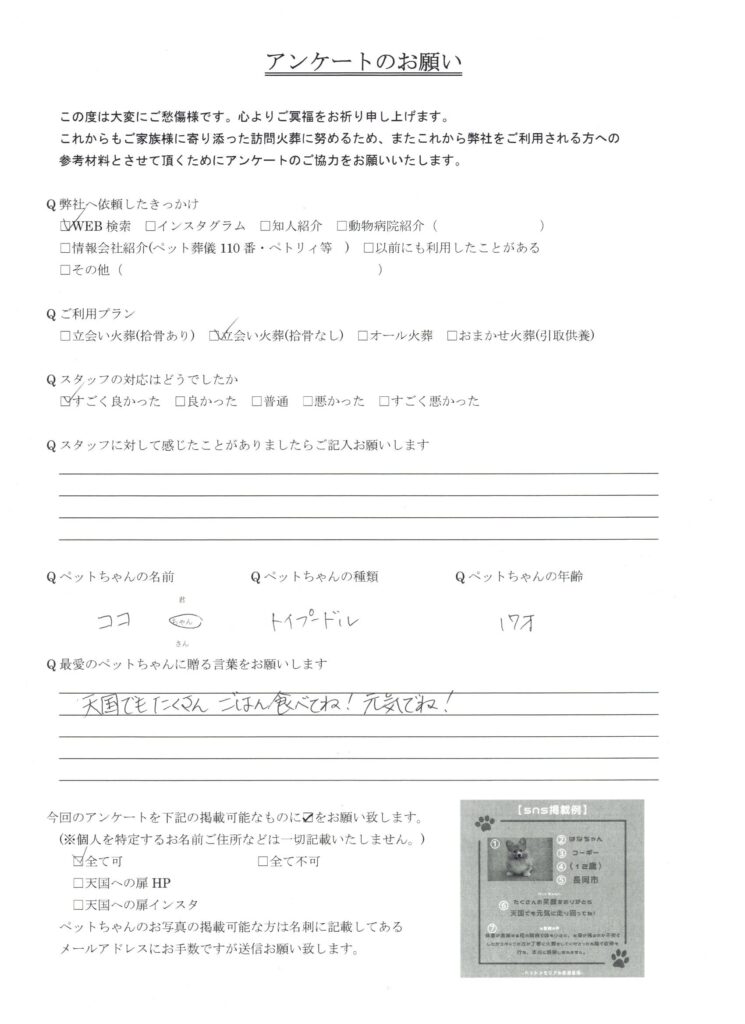 アンケートのお願い
この度は大変にご愁傷様です。心よりご冥福をお祈り申し上げます。
これからもご家族様に寄り添った訪問火葬に努めるため、またこれから弊社をご利用される方への
参考材料とさせて頂くためにアンケートのご協力をお願いいたします。
Q 弊社へ依頼したきっかけ
☑WEB 検索 □インスタグラム □知人紹介 □動物病院紹介（ ）
□情報会社紹介(ペット葬儀 110 番・ペトリィ等 ) □以前にも利用したことがある
□その他（ ）
Q ご利用プラン
□立会い火葬(拾骨あり) ☑立会い火葬(拾骨なし) □オール火葬 □おまかせ火葬(引取供養)
Q スタッフの対応はどうでしたか
☑すごく良かった □良かった □普通 □悪かった □すごく悪かった
Q スタッフに対して感じたことがありましたらご記入お願いします
Q ペットちゃんの名前 Q ペットちゃんの種類 Q ペットちゃんの年齢
君
ココ ちゃん トイプードル 17才
さん
Q 最愛のペットちゃんに贈る言葉をお願いします
天国でもたくさん ごはん食べてね！元気でね！
今回のアンケートを下記の掲載可能なものに☑をお願い致します。
(※個人を特定するお名前ご住所などは一切記載いたしません。)
☑全て可 □全て不可
□天国への扉 HP
□天国への扉インスタ
ペットちゃんのお写真の掲載可能な方は名刺に記載してある
メールアドレスにお手数ですが送信お願い致します。
【sns掲載例】
① ② はなちゃん
③ コーギー
④ (12歳)
⑤ 長岡市
⑥ たくさんの笑顔をありがとう
天国でも元気に走り回ってね!
⑦